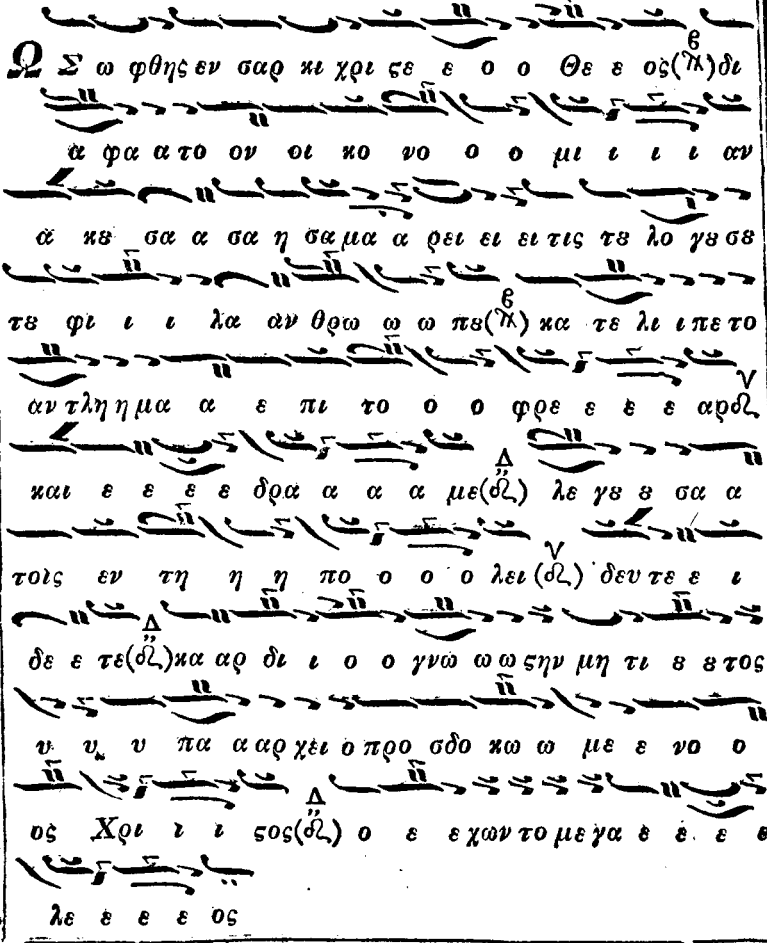 Ω Σ ω φθης εν σαρ κι χρι ϛε ε ο ο Θε ε ος(π) δι
α φα α το ον οι κο νο ο ο μι ι ι ι αν
α κȣ σα α σα η σα μα α ρει ει ει τις τȣ λο γȣ σȣ
τȣ φι ι ι λα αν θρω ω ω πε(π) κα τε λι ι πε το
αν τλη η μα α ε πι το ο ο φρε ε ε ε αρ
και ε ε ε ε δρα α α α με(Δ) λε γȣ ȣ σα α
τοις εν τη η η πο ο ο ο λει (ν) δευ τε ε ι
δε ε τε(Δ)κα αρ δι ι ο ο γνω ω ω ϛην μη τι ȣ ȣ τος
υ υ υ πα α αρ χει ο προ σδο κω ω με ε νο ο
ος Χρι ι ι ϛος(Δ) ο ε ε χων το με γα ε ε ε ε
λε ε ε ε ος